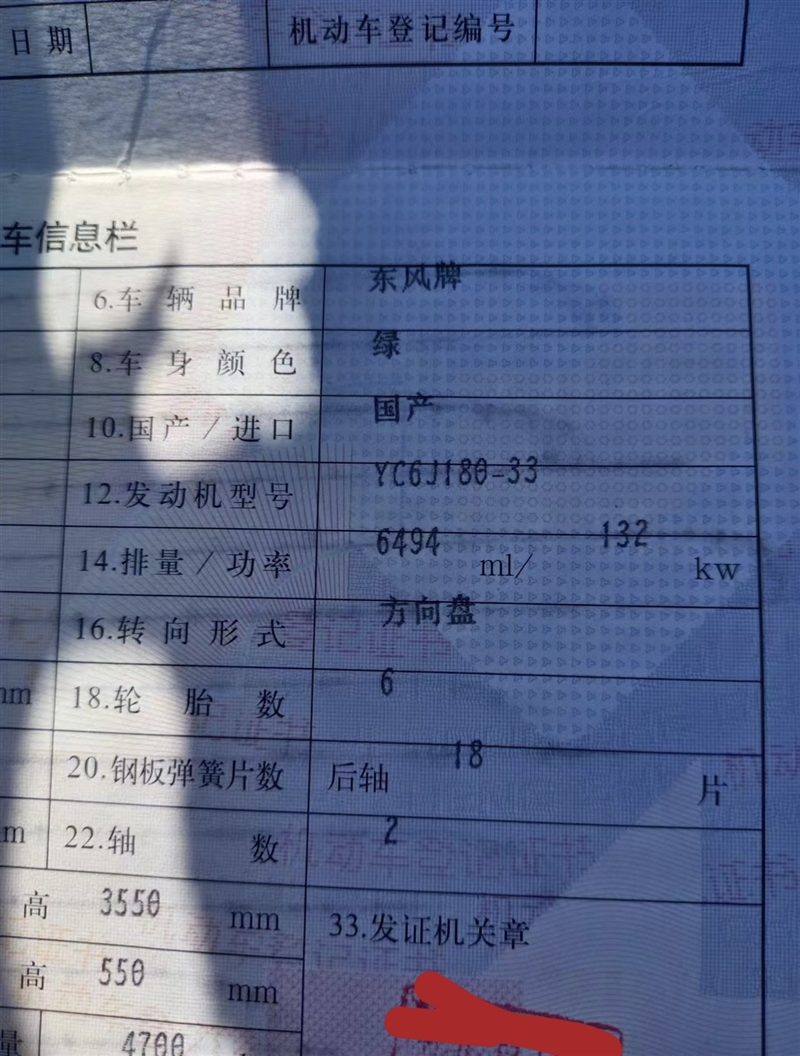 日期 机动车登记编号
车信息栏
6.车辆品牌 东风牌
8.车身颜色 绿
10.国产/进口 国产
12.发动机型号 YC6J180-33
14.排量/功率 6494 ml/ 132 kw
16.转向形式 方向盘
mm 18.轮胎数 6
20.钢板弹簧片数 后轴 18 片
m 22.轴数 2
高 3550 mm 33.发证机关章
高 550 mm
量 4700